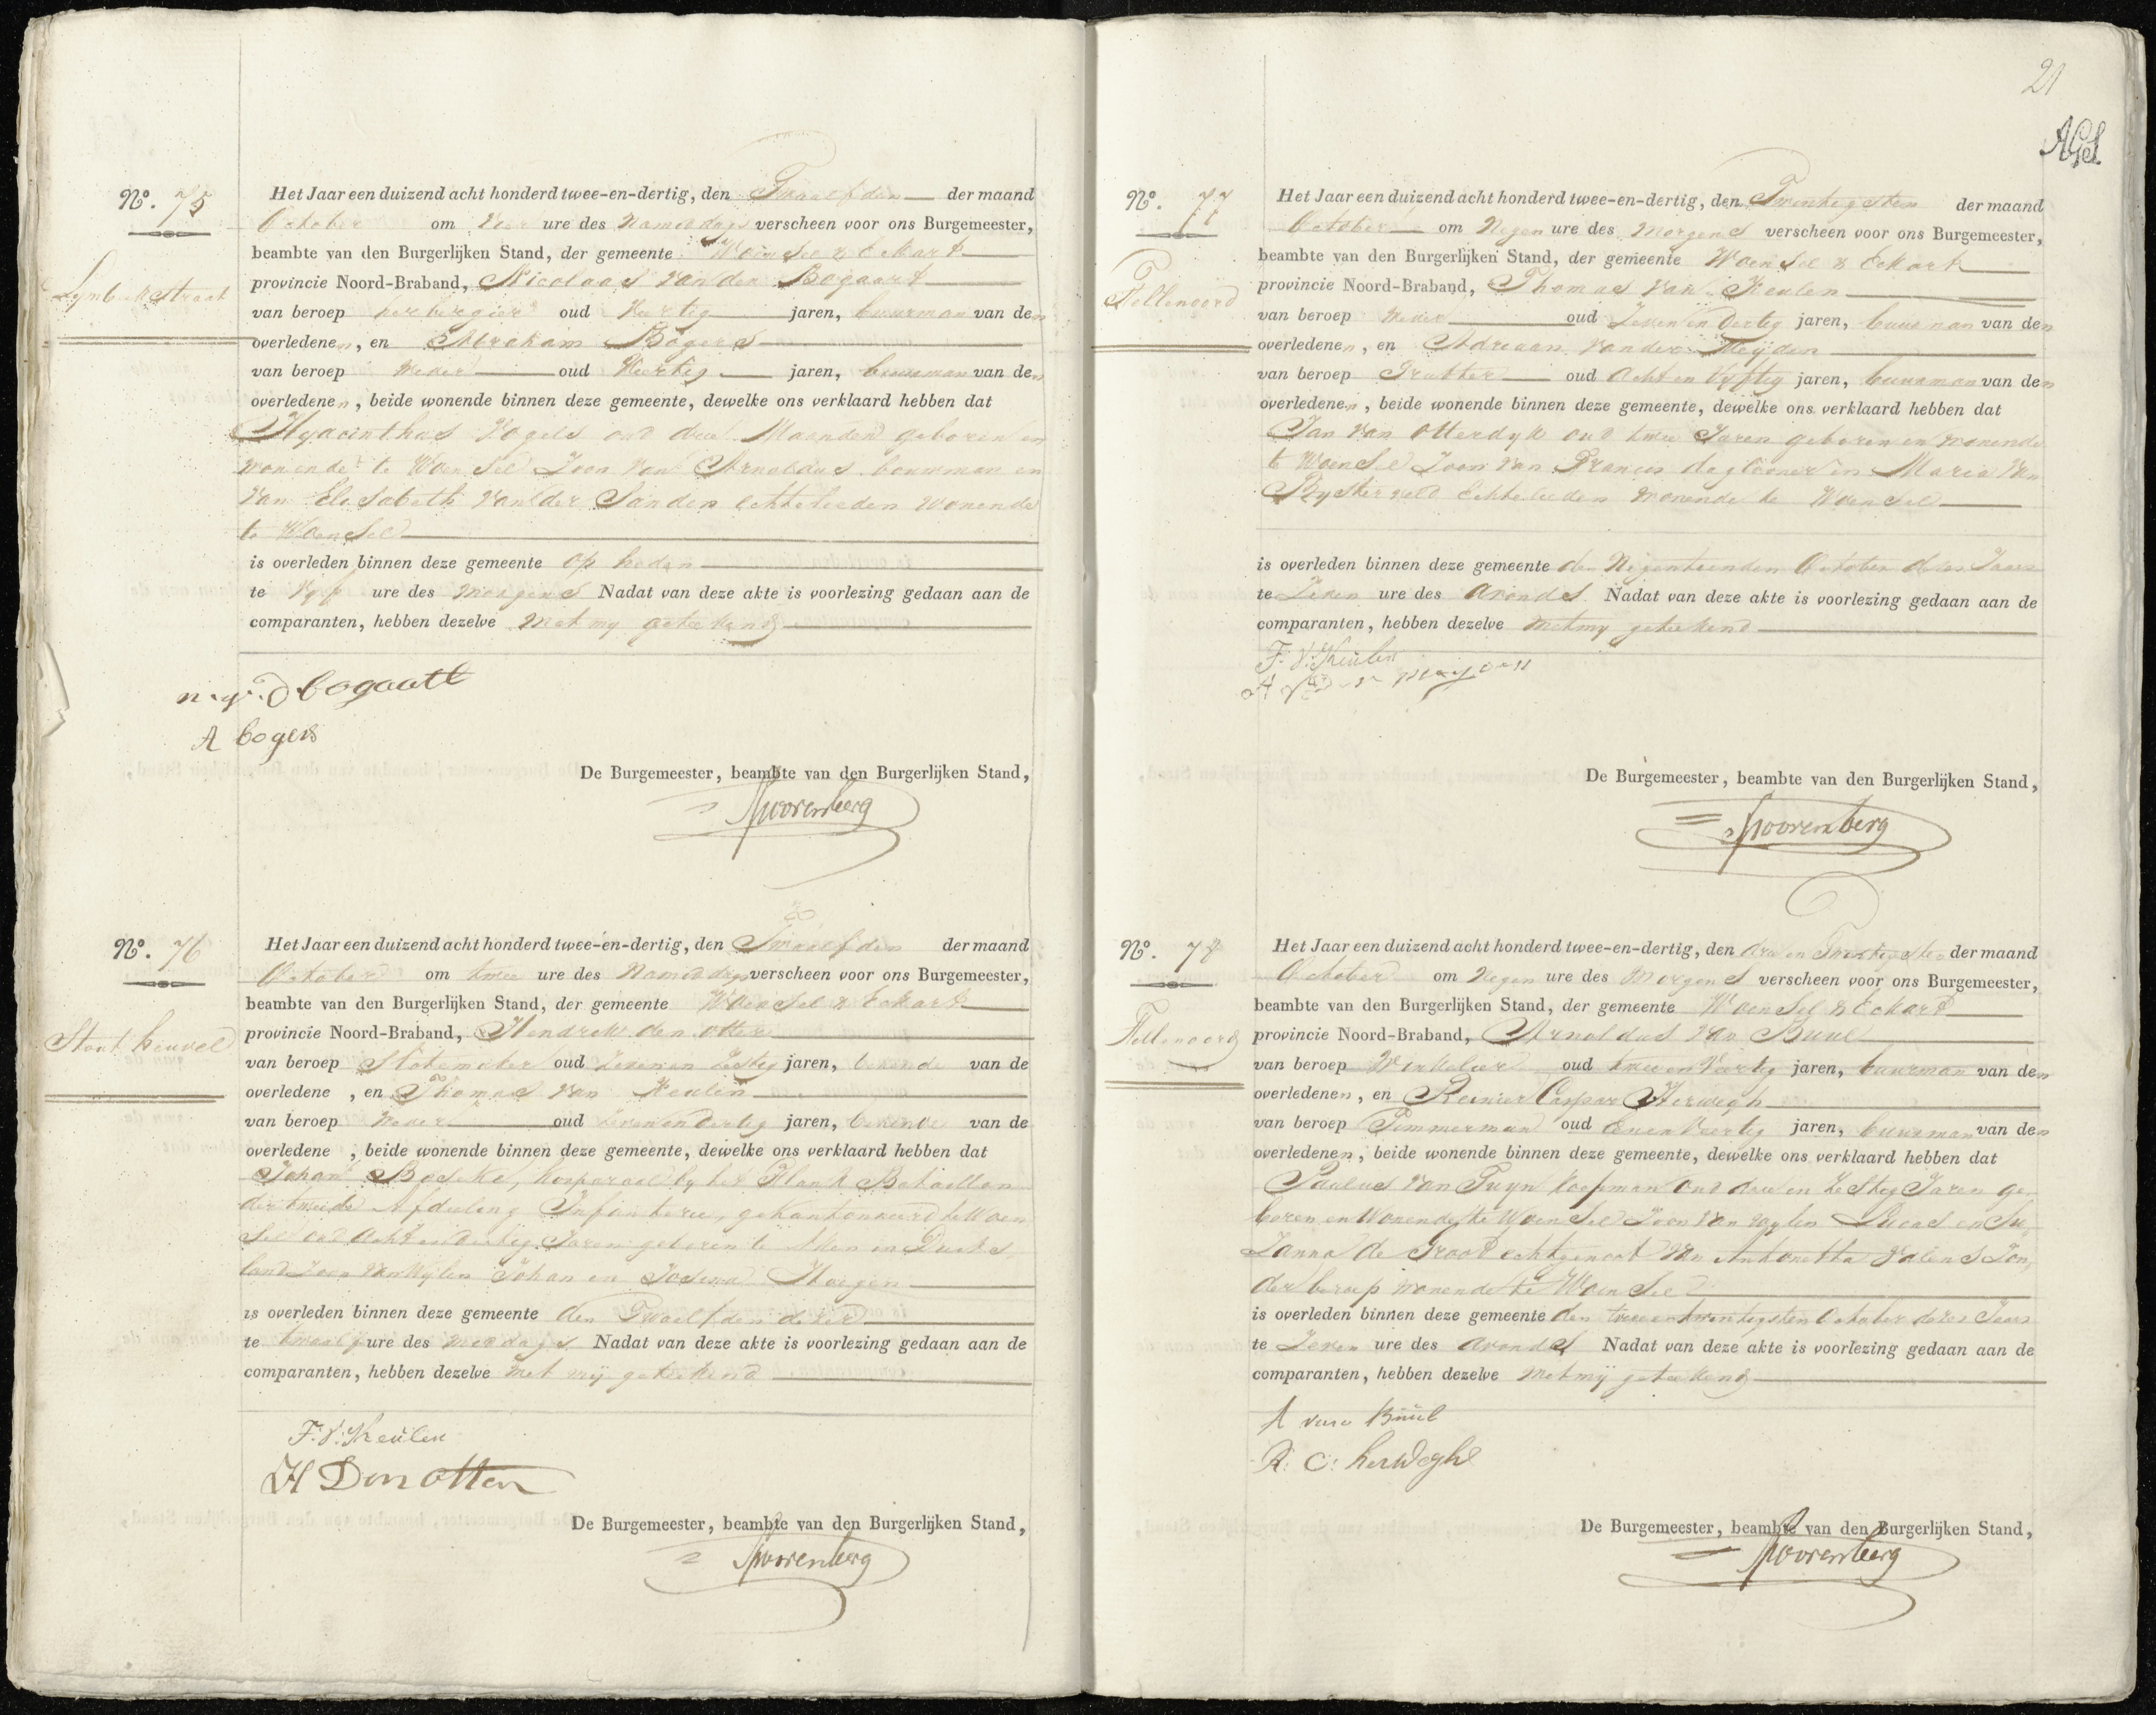 Nº. 75
Lymbeekstraat
Het Jaar een duizend acht honderd twee-en-dertig, den Twaalfden der maand
October om vier ure des Namiddags verscheen voor ons Burgemeester,
beambte van den Burgerlijken Stand, der gemeente Woensel & Eckart
provincie Noord-Braband, Nicolaas van den Bogaart
van beroep herbergier oud Veertig jaren, buurman van den
overledenen, en Abraham Bogers
van beroep Weder oud Veertig jaren, buurman van den
overledenen, beide wonende binnen deze gemeente, dewelke ons verklaard hebben dat
Hyacinthus Vogels oud drie Maanden geboren en
wonende te Woensel Zoon van Arnoldus bouwman en
van Elisabeth van der Sanden echtelieden wonende
te Woensel
is overleden binnen deze gemeente op heden
te Vyf ure des morgens Nadat van deze akte is voorlezing gedaan aan de
comparanten, hebben dezelve met my geteekend
n. v. d bogaart
A bogers
De Burgemeester, beambte van den Burgerlijken Stand,
Smoorenberg
Nº. 76
Het Jaar een duizend acht honderd twee-en-dertig, den Twaalfden der maand
October om twee ure des Namiddags verscheen voor ons Burgemeester,
beambte van den Burgerlijken Stand, der gemeente Woensel & Eckart
Straat heuvel
provincie Noord-Braband, Hendrik den Otter
van beroep Slotemaker oud Zeven en Zestig jaren, bekende van de
overledene, en Thomas van Keulen
van beroep Weder oud Zeven en Dertig jaren, bekende van de
overledene, beide wonende binnen deze gemeente, dewelke ons verklaard hebben dat
Johan korporaal by het Flank Bataillon
der tweede Afdeeling Infanterie, gekantonneerd te Woen
sel oud Acht en dertig Jaren geboren te Aken in Duits
land Zoon van Wylen Johan en
is overleden binnen deze gemeente den Twaalfden dezer
te twaalf ure des middags Nadat van deze akte is voorlezing gedaan aan de
comparanten, hebben dezelve met mij geteekend
F. V: Keulen
H Den Otter
De Burgemeester, beambte van den Burgerlijken Stand,
Smoorenberg
21
Nº. 77
Fellenoord
Het Jaar een duizend acht honderd twee-en-dertig, den Twintigsten der maand
October om Negen ure des Morgens verscheen voor ons Burgemeester,
beambte van den Burgerlijken Stand, der gemeente Woensel & Eckart
provincie Noord-Braband, Thomas van Keulen
van beroep Weder oud Zeven en Dertig jaren, buurman van den
overledenen, en Adriaan van der Meijden
van beroep oud Acht en Vyftig jaren, buurman van den
overledenen, beide wonende binnen deze gemeente, dewelke ons verklaard hebben dat
Jan van Otterdyk oud twee Jaren geboren en wonende
te Woensel Zoon van Francis daglooner en Maria van
Bysterveld Echtelieden wonende te Woensel
is overleden binnen deze gemeente den Negentienden October dezes Jaars
te Zeven ure des Avonds Nadat van deze akte is voorlezing gedaan aan de
comparanten, hebben dezelve met my geteekend
F. V: Keulen
A v der meyden
De Burgemeester, beambte van den Burgerlijken Stand,
Smoorenberg
Nº. 78
Het Jaar een duizend acht honderd twee-en-dertig, den drie en Twintigsten der maand
October om Negen ure des Morgens verscheen voor ons Burgemeester,
beambte van den Burgerlijken Stand, der gemeente Woensel & Eckart
Fellenoord
provincie Noord-Braband, Arnoldus van Buul
van beroep Winkelier oud twee en Veertig jaren, buurman van den
overledenen, en Reinier Caspar Herwegh
van beroep Timmerman oud Een en Veertig jaren, buurman van den
overledenen, beide wonende binnen deze gemeente, dewelke ons verklaard hebben dat
Paulus van Tuyn koopman oud drie en Zestig Jaren ge-
boren en Wonende te Woensel Zoon van wylen Lucas en Su
Zanna de Groot echtgenoot van Antonetta Valens Zon,
der beroep wonende te Woensel
is overleden binnen deze gemeente den twee en twintigsten October dezes Jaars
te Zeven ure des Avonds Nadat van deze akte is voorlezing gedaan aan de
comparanten, hebben dezelve met mij geteekend
A van Buul
R: C: herweghe
De Burgemeester, beambte van den Burgerlijken Stand,
Smoorenberg